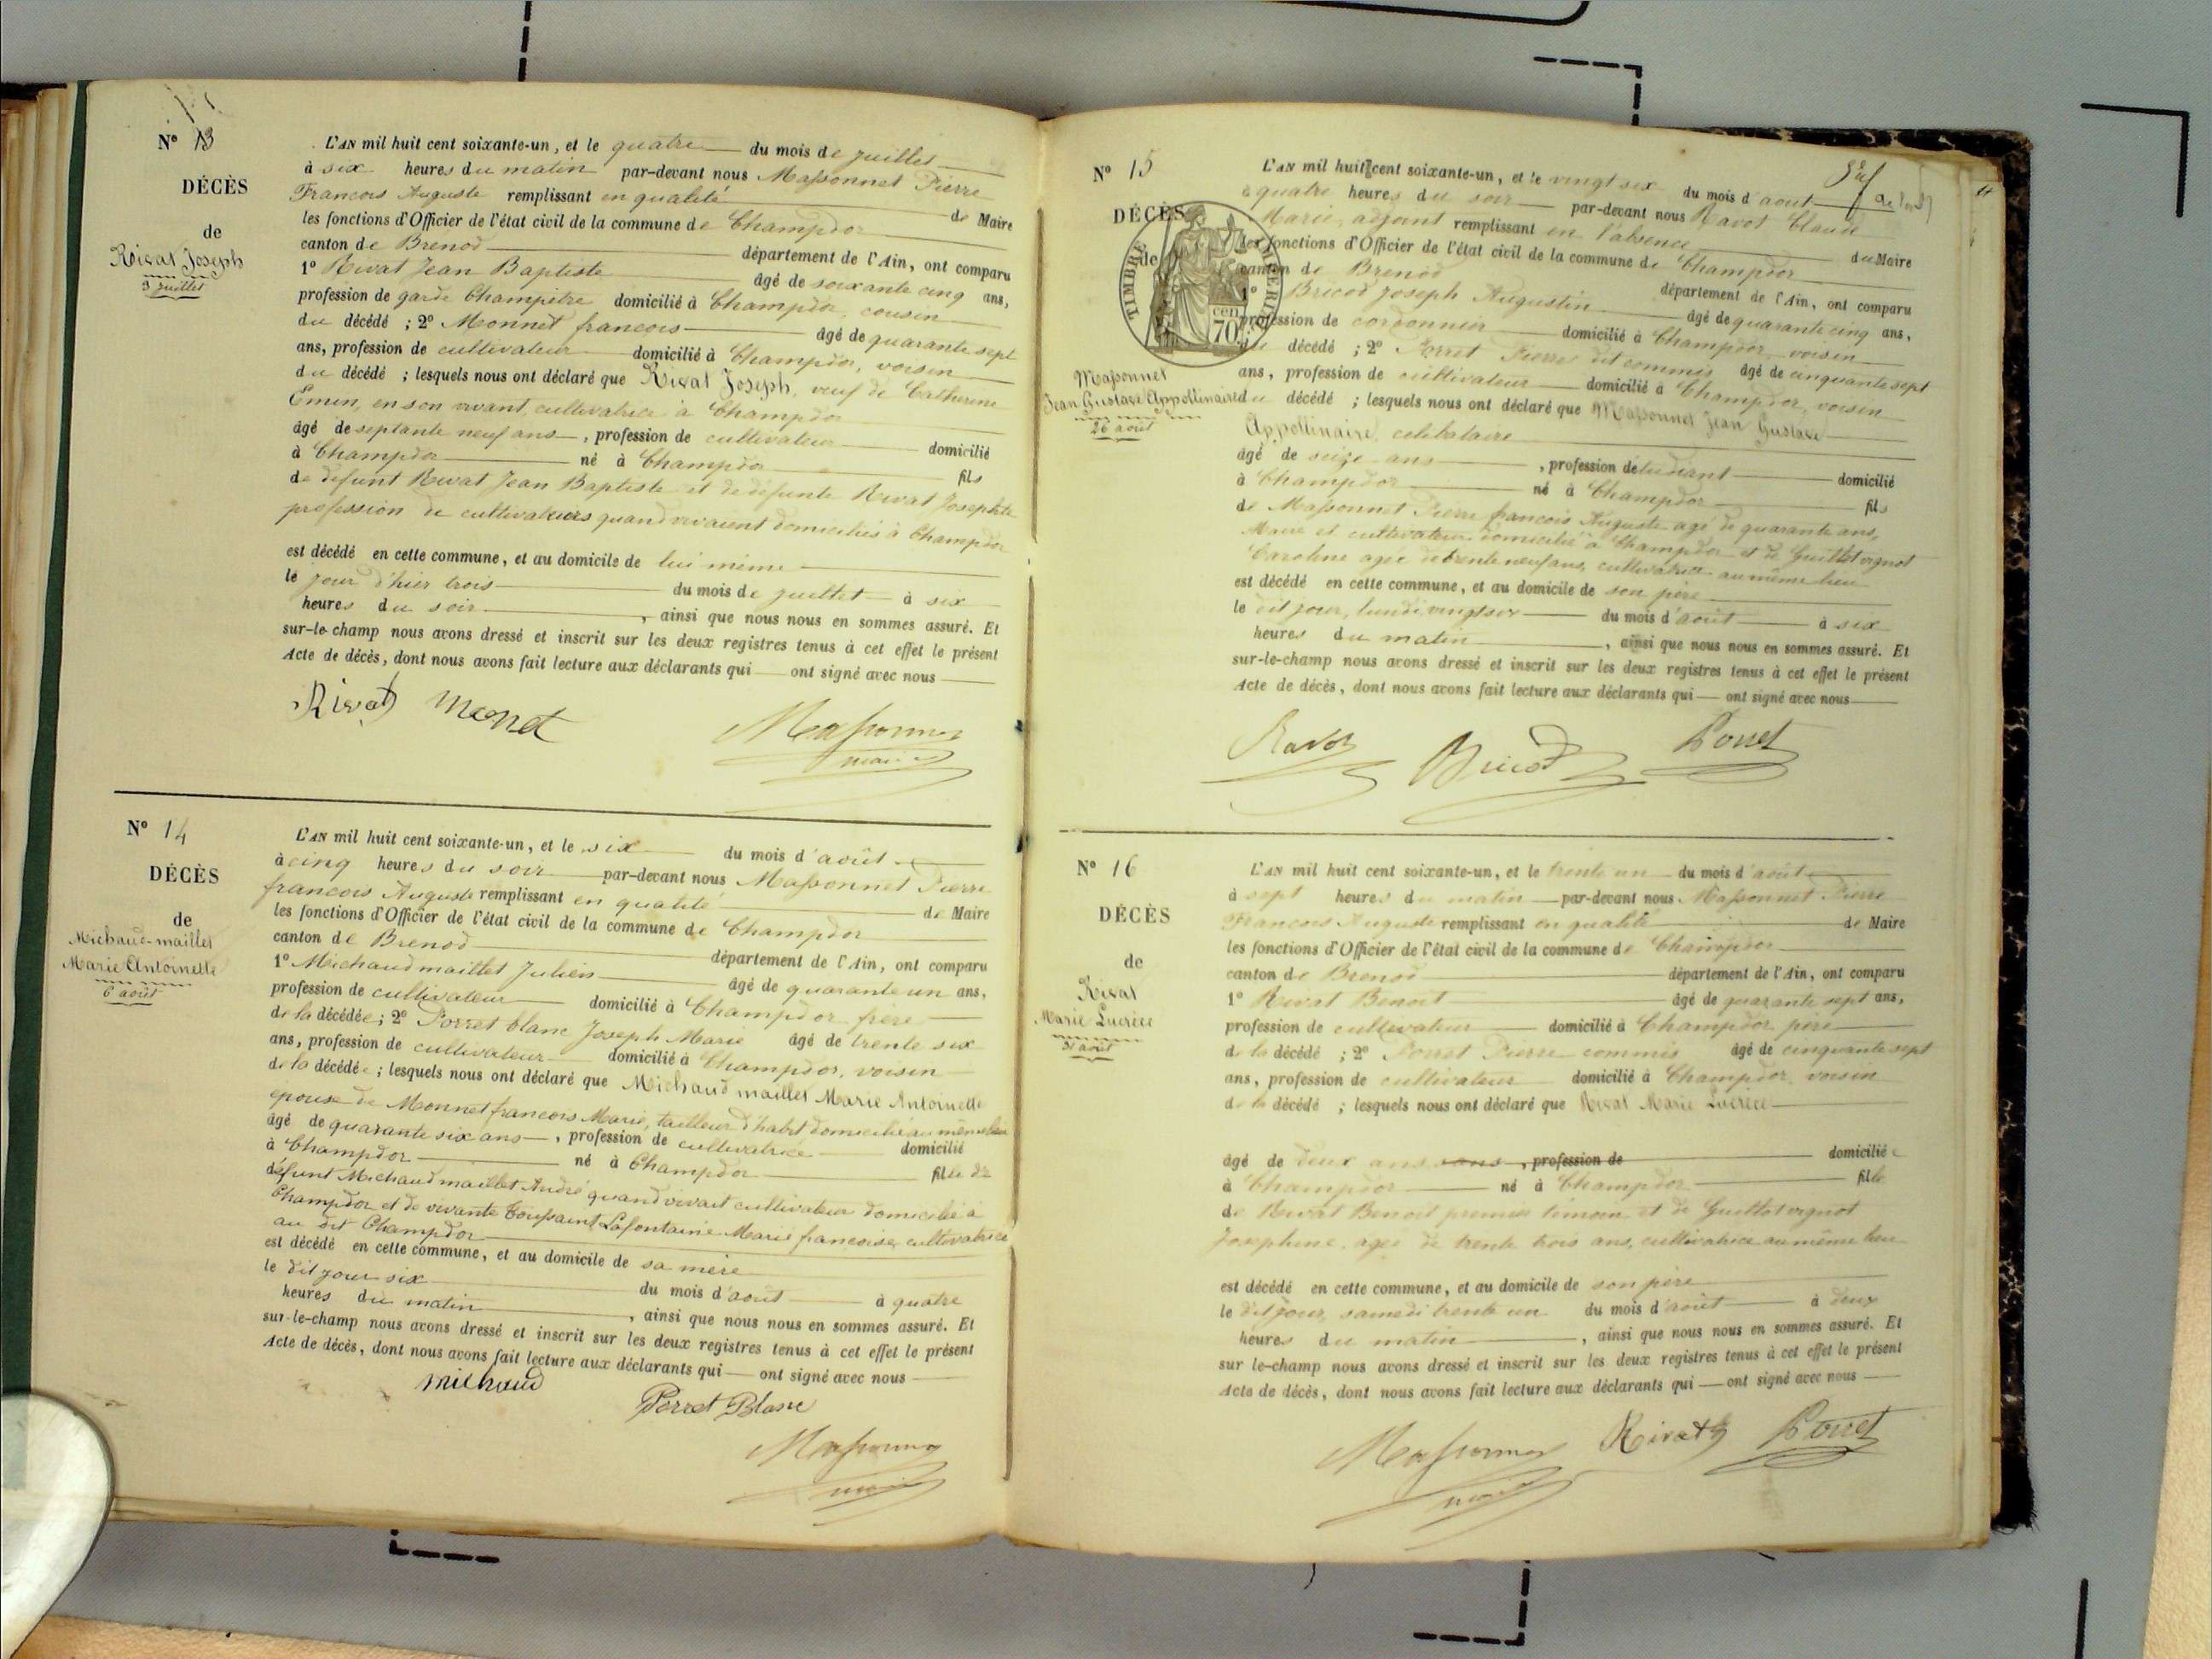 N° 13
DÉCÈS
de
Rivat Joseph
3 juillet
L'AN mil huit cent soixante-un, et le quatre du mois de juillet
à six heures du matin par-devant nous Massonnet Pierre
Francois Auguste remplissant en qualité de Maire
les fonctions d'Officier de l'état civil de la commune de Champdor
canton de Brenod département de l'Ain, ont comparu
1° Rivat Jean Baptiste âgé de soixante cinq ans,
profession de garde Champêtre domicilié à Champdor, cousin
du décédé ; 2° Monnet francois âgé de quarante sept
ans, profession de cultivateur domicilié à Champdor, voisin
du décédé ; lesquels nous ont déclaré que Rivat Joseph, veuf de Catherine
Emin, en son vivant cultivatrice à Champdor
âgé de septante neuf ans, profession de cultivateur domicilié
à Champdor né à Champdor fils
de defunt Rivat Jean Baptiste et de défunte Rivat Josephte
profession de cultivateurs quand vivaient domiciliés à Champdor
est décédé en cette commune, et au domicile de lui même
le jour d'hier trois du mois de juillet à six
heures du soir, ainsi que nous nous en sommes assuré. Et
sur-le-champ nous avons dressé et inscrit sur les deux registres tenus à cet effet le présent
Acte de décès, dont nous avons fait lecture aux déclarants qui ont signé avec nous
Rivat Monet Massonnet
maire
N° 14
DÉCÈS
de
Michaud-maillet
Marie Antoinette
6 août
L'AN mil huit cent soixante-un, et le six du mois d'août
à cinq heures du soir par-devant nous Massonnet Pierre
francois Auguste remplissant en qualité de Maire
les fonctions d'Officier de l'état civil de la commune de Champdor
canton de Brenod département de l'Ain, ont comparu
1° Michaud maillet Julien âgé de quarante un ans,
profession de cultivateur domicilié à Champdor frere
de la décédée ; 2° Porret blanc Joseph Marie âgé de trente six
ans, profession de cultivateur domicilié à Champdor, voisin
de la décédée ; lesquels nous ont déclaré que Michaud maillet Marie Antoinette
épouse de Monnet francois Marie, tailleur d'habit domicilié au même lieu
âgé de quarante six ans, profession de cultivatrice domicilié
à Champdor né à Champdor fille de
défunt Michaud maillet André quand vivait cultivateur domicilié à
Champdor et de vivante Toussaint Lafontaine Marie francoise, cultivatrice
au dit Champdor
est décédé en cette commune, et au domicile de sa mère
le dit jour six du mois d'août à quatre
heures du matin, ainsi que nous nous en sommes assuré. Et
sur-le-champ nous avons dressé et inscrit sur les deux registres tenus à cet effet le présent
Acte de décès, dont nous avons fait lecture aux déclarants qui ont signé avec nous
Michaud
Porret Blanc
Massonnet
maire
N° 15
DÉCÈS
de
TIMBRE IMPERIAL
70 cen
Massonnet
Jean Gustave Appollinaire
26 août
L'AN mil huit cent soixante-un, et le vingt six du mois d'aout
à quatre heures du soir par-devant nous Ravot Claude
Marie, adjoint remplissant en l'absence du Maire
les fonctions d'Officier de l'état civil de la commune de Champdor
canton de Brenod département de l'Ain, ont comparu
1° Bricod Joseph Augustin âgé de quarante cinq ans,
profession de cordonnier domicilié à Champdor voisin
du décédé ; 2° Porret Pierre dit commis âgé de cinquante sept
ans, profession de cultivateur domicilié à Champdor, voisin
du décédé ; lesquels nous ont déclaré que Massonnet Jean Gustave
Appollinaire, célibataire
âgé de seize ans, profession d'étudiant domicilié
à Champdor né à Champdor fils
de Massonnet Pierre francois Auguste agé de quarante ans,
Maire et cultivateur domicilié à Champdor et de Guillot vignot
Caroline agée de trente neuf ans, cultivatrice au même lieu
est décédé en cette commune, et au domicile de son père
le dit jour, lundi vingt six du mois d'août à six
heures du matin, ainsi que nous nous en sommes assuré. Et
sur-le-champ nous avons dressé et inscrit sur les deux registres tenus à cet effet le présent
Acte de décès, dont nous avons fait lecture aux déclarants qui ont signé avec nous
Ravot Bricod Porret
N° 16
DÉCÈS
de
Rivat
Marie Lucrèce
31 août
L'AN mil huit cent soixante-un, et le trente un du mois d'août
à sept heures du matin par-devant nous Massonnet Pierre
Francois Auguste remplissant en qualité de Maire
les fonctions d'Officier de l'état civil de la commune de Champdor
canton de Brenod département de l'Ain, ont comparu
1° Rivat Benoit âgé de quarante sept ans,
profession de cultivateur domicilié à Champdor père
de la décédé ; 2° Porret Pierre commis âgé de cinquante sept
ans, profession de cultivateur domicilié à Champdor voisin
de la décédé ; lesquels nous ont déclaré que Rivat Marie Lucrèce
âgé de deux ans sans, profession de domiciliée
à Champdor né à Champdor fille
de Rivat Benoit premier témoin et de Guillot vignot
Josephine, agée de trente trois ans, cultivatrice au même lieu
est décédé en cette commune, et au domicile de son père
le dit jour, samedi trente un du mois d'août à deux
heures du matin, ainsi que nous nous en sommes assuré. Et
sur le-champ nous avons dressé et inscrit sur les deux registres tenus à cet effet le présent
Acte de décès, dont nous avons fait lecture aux déclarants qui ont signé avec nous
Massonnet Rivat Porret
maire